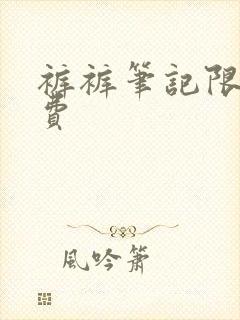 裤裤筆記限
費
風吟簫